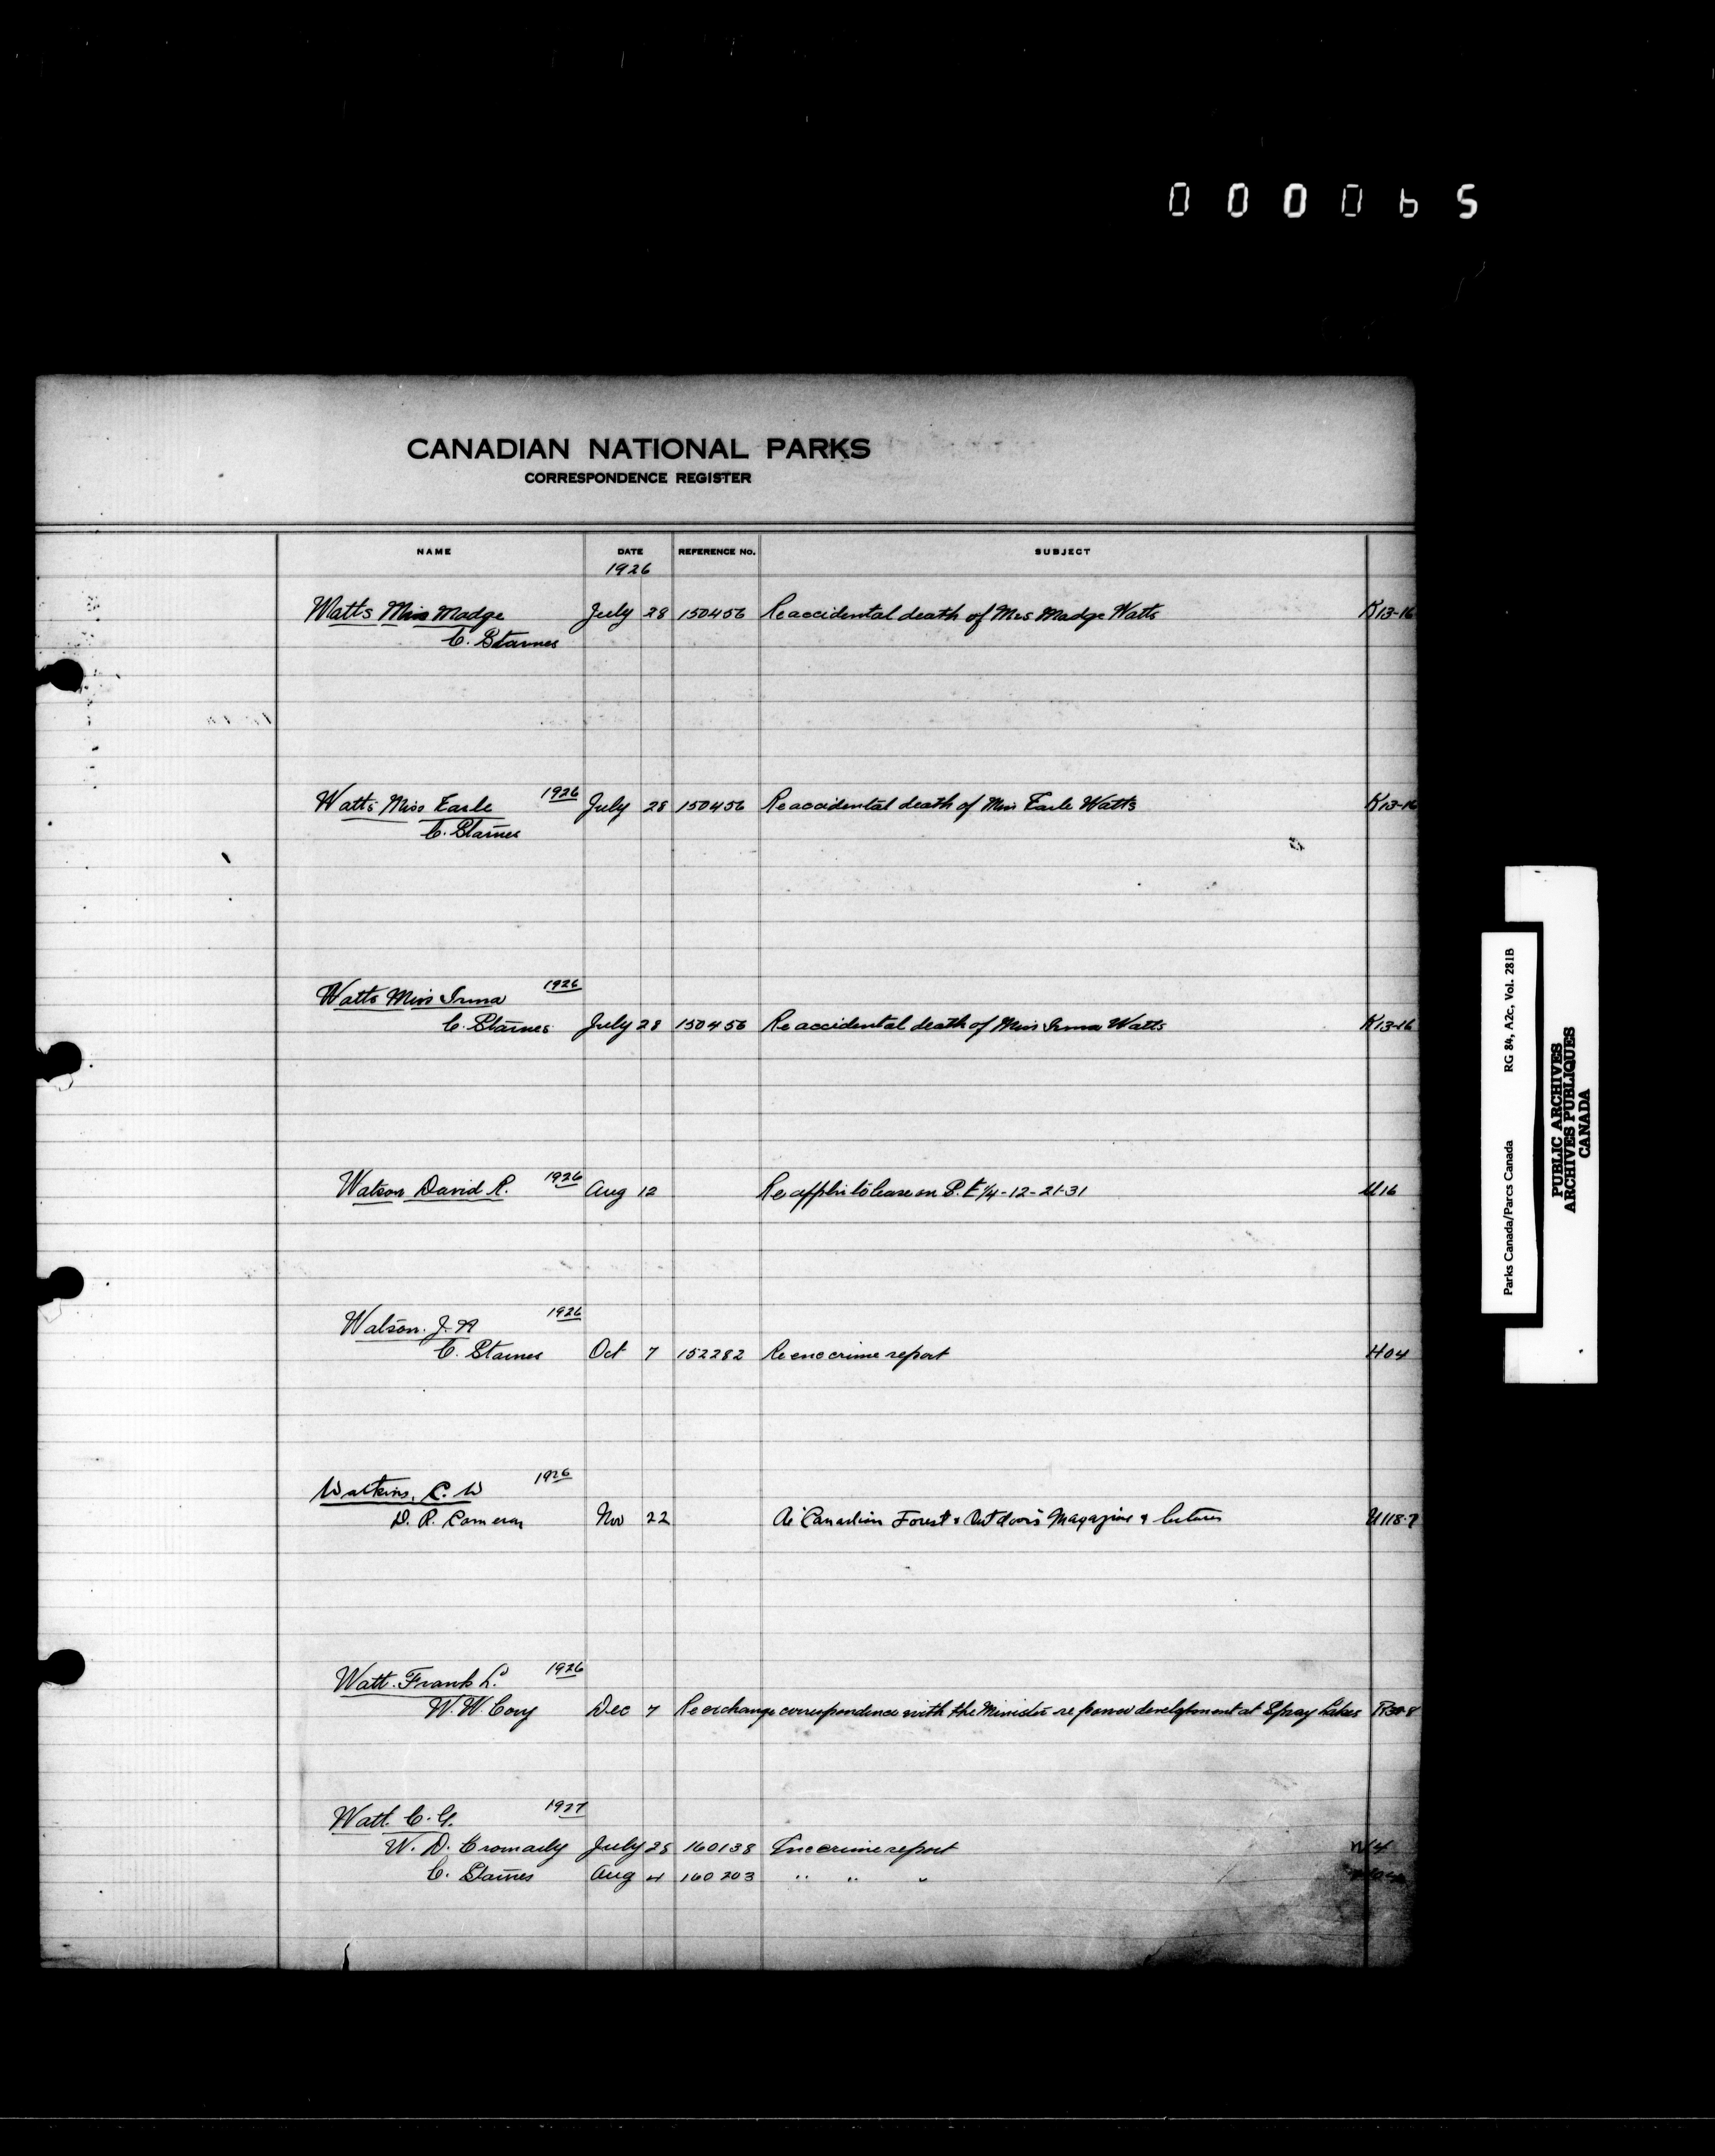 000065
CANADIAN NATIONAL PARKS
CORRESPONDENCE REGISTER
NAME DATE REFERENCE No. SUBJECT
1926
Watts Miss Madge July 28 150456 Re accidental death of Miss Madge Watts K13-16
C. Starnes
Watts Miss Earle 1926 July 28 150456 Re accidental death of Miss Earle Watts K13-16
C. Starnes
Watts Miss Irma 1926
C. Starnes July 28 150456 Re accidental death of Miss Irma Watts K13-16
Watson David R. 1926 Aug 12 Re appln to lease on S.E 1/4-12-21-31 U16
Watson. J. A 1926
C. Starnes Oct 7 152282 Re enc crime report H04
Watkins, R. W 1926
D. R. Cameron Nov 22 Re Canadian Forest & Outdoors Magazine & lectures U118-7
Watt. Frank L. 1926
W. W. Cory Dec 7 Re exchange correspondence with the Minister re power development at Spray Lakes 8
Watt. C. G. 1927
W. D. Cromarty July 25 160138 Enc crime report
C. Starnes Aug 4 160203 " " "
Parks Canada/Parcs Canada RG 84, A2c, Vol. 281B
PUBLIC ARCHIVES
ARCHIVES PUBLIQUES
CANADA